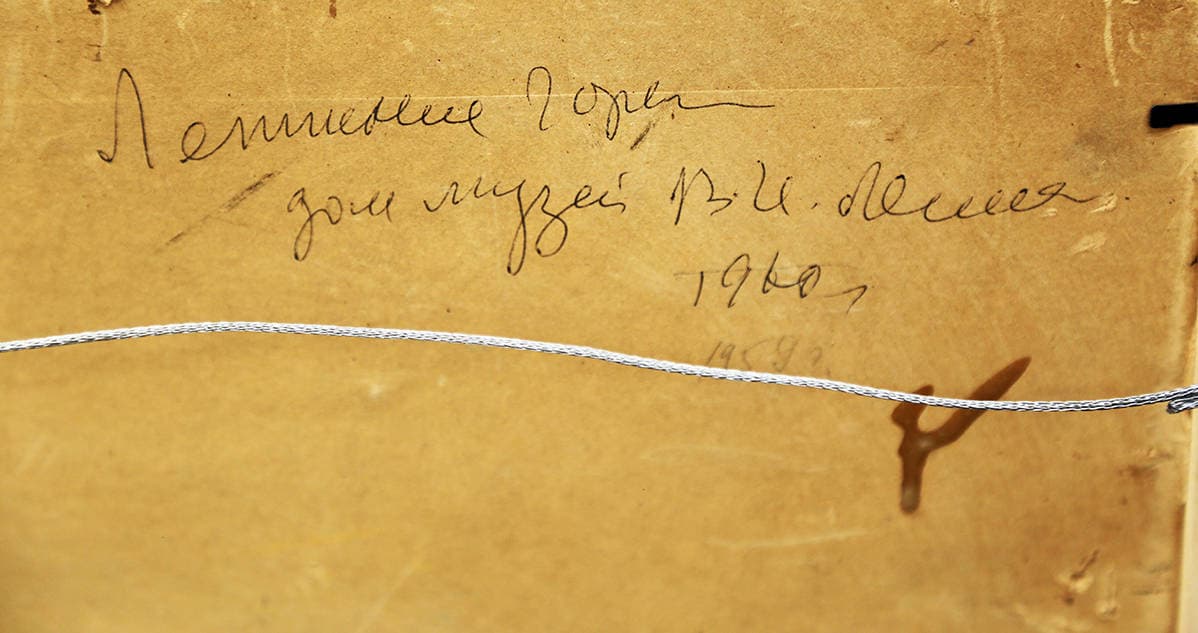 Ленинские Горки
дом музей В.И. Ленина.
1960г
1959г